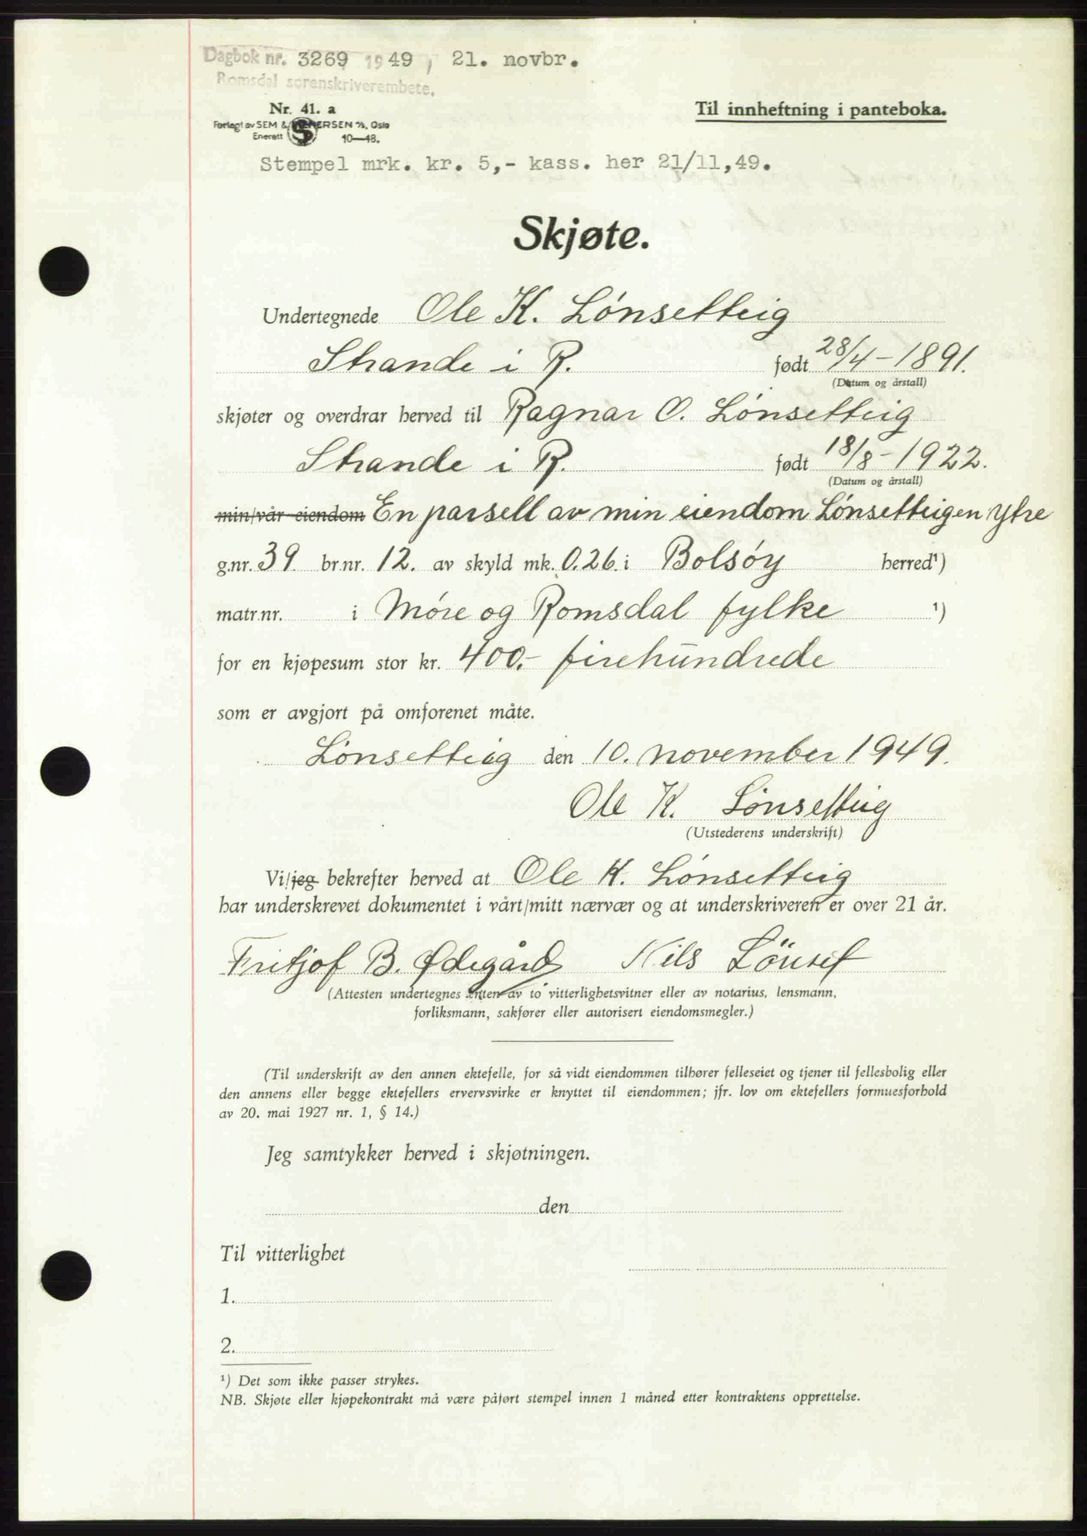 Dagbok nr. 3269 1949, 21. novbr.
Romsdal sorenskriverembete.
Nr. 41. a
Til innheftning i panteboka.
Forlagt av SEM & STENERSEN A/S, Oslo
Enerett 10—48.
Stempel mrk. kr. 5,- kass. her 21/11,49.
Skjøte.
Undertegnede Ole K. Lønsetteig
Strande i R. født 28/4-1891.
(Datum og årstall)
skjøter og overdrar herved til Ragnar O. Lønsetteig
Strande i R. født 18/8-1922.
(Datum og årstall)
min/vår eiendom En parsell av min eiendom Lønsetteigen Ytre
g.nr. 39 br.nr. 12. av skyld mk. 0.26. i Bolsøy herred¹)
matr.nr. i Møre og Romsdal fylke ¹)
for en kjøpesum stor kr. 400.- firehundrede
som er avgjort på omforenet måte.
Lønsetteig den 10. november 1949.
Ole K. Lønsetteig
(Utstederens underskrift)
Vi/jeg bekrefter herved at Ole K. Lønsetteig
har underskrevet dokumentet i vårt/mitt nærvær og at underskriveren er over 21 år.
Fritjof B. Ødegård Nils Lönset
(Attesten undertegnes enten av to vitterlighetsvitner eller av notarius, lensmann,
forliksmann, sakfører eller autorisert eiendomsmegler.)
(Til underskrift av den annen ektefelle, for så vidt eiendommen tilhører felleseiet og tjener til fellesbolig eller
den annens eller begge ektefellers ervervsvirke er knyttet til eiendommen; jfr. lov om ektefellers formuesforhold
av 20. mai 1927 nr. 1, § 14.)
Jeg samtykker herved i skjøtningen.
den
Til vitterlighet
1.
2.
¹) Det som ikke passer strykes.
NB. Skjøte eller kjøpekontrakt må være påført stempel innen 1 måned etter kontraktens opprettelse.